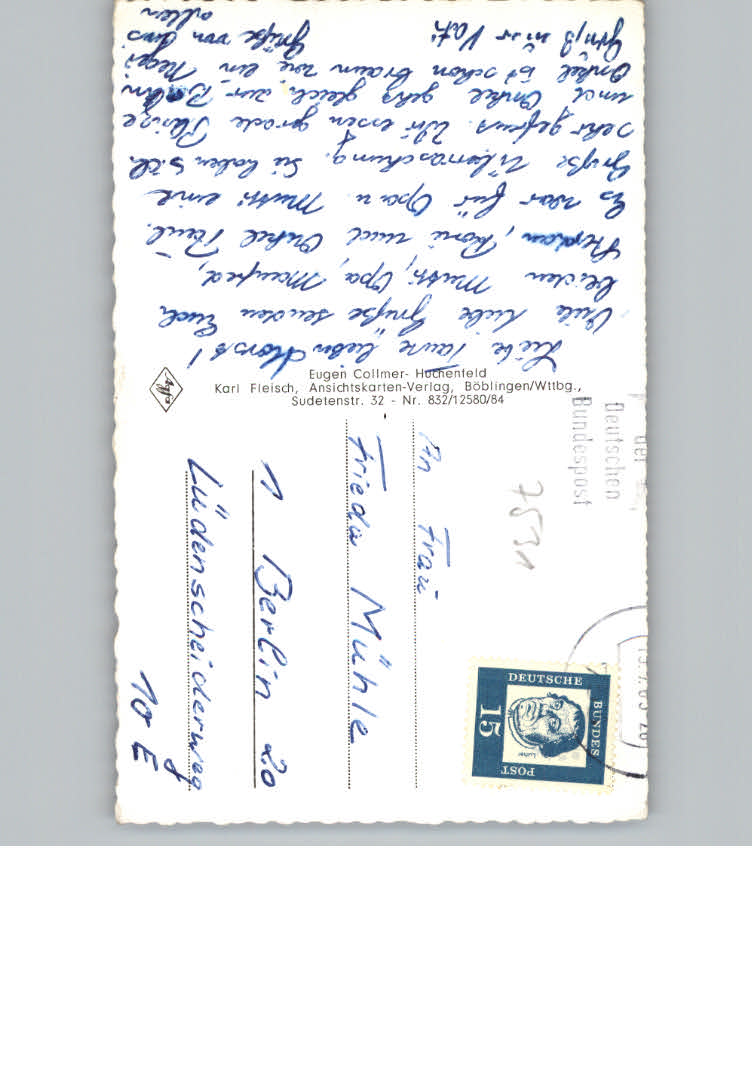 Liebe Tante, lieber Horst!
Viele liebe Grüße senden Euch
beiden Mutti, Opa, Manfred,
Stephan, Moni und Onkel Paul.
Es war für Opa u. Mutti eine
Große Überraschung. Sie haben sich
sehr gefreut. Wir essen grade
und Onkel geht gleich zur Bahn
Onkel ist schon braun wie ein Neger
Gruß nur Vati
Grüße von uns
allen
Eugen Collmer- Huchenfeld
Karl Fleisch, Ansichtskarten-Verlag, Böblingen/Wttbg.,
Sudetenstr. 32 - Nr. 832/12580/84
Agfa
An Frau
Frieda Mühle
1 Berlin 20
Lüdenscheiderweg
10 E
7531
der
Deutschen
Bundespost
DEUTSCHE
BUNDES
POST
15
Luther